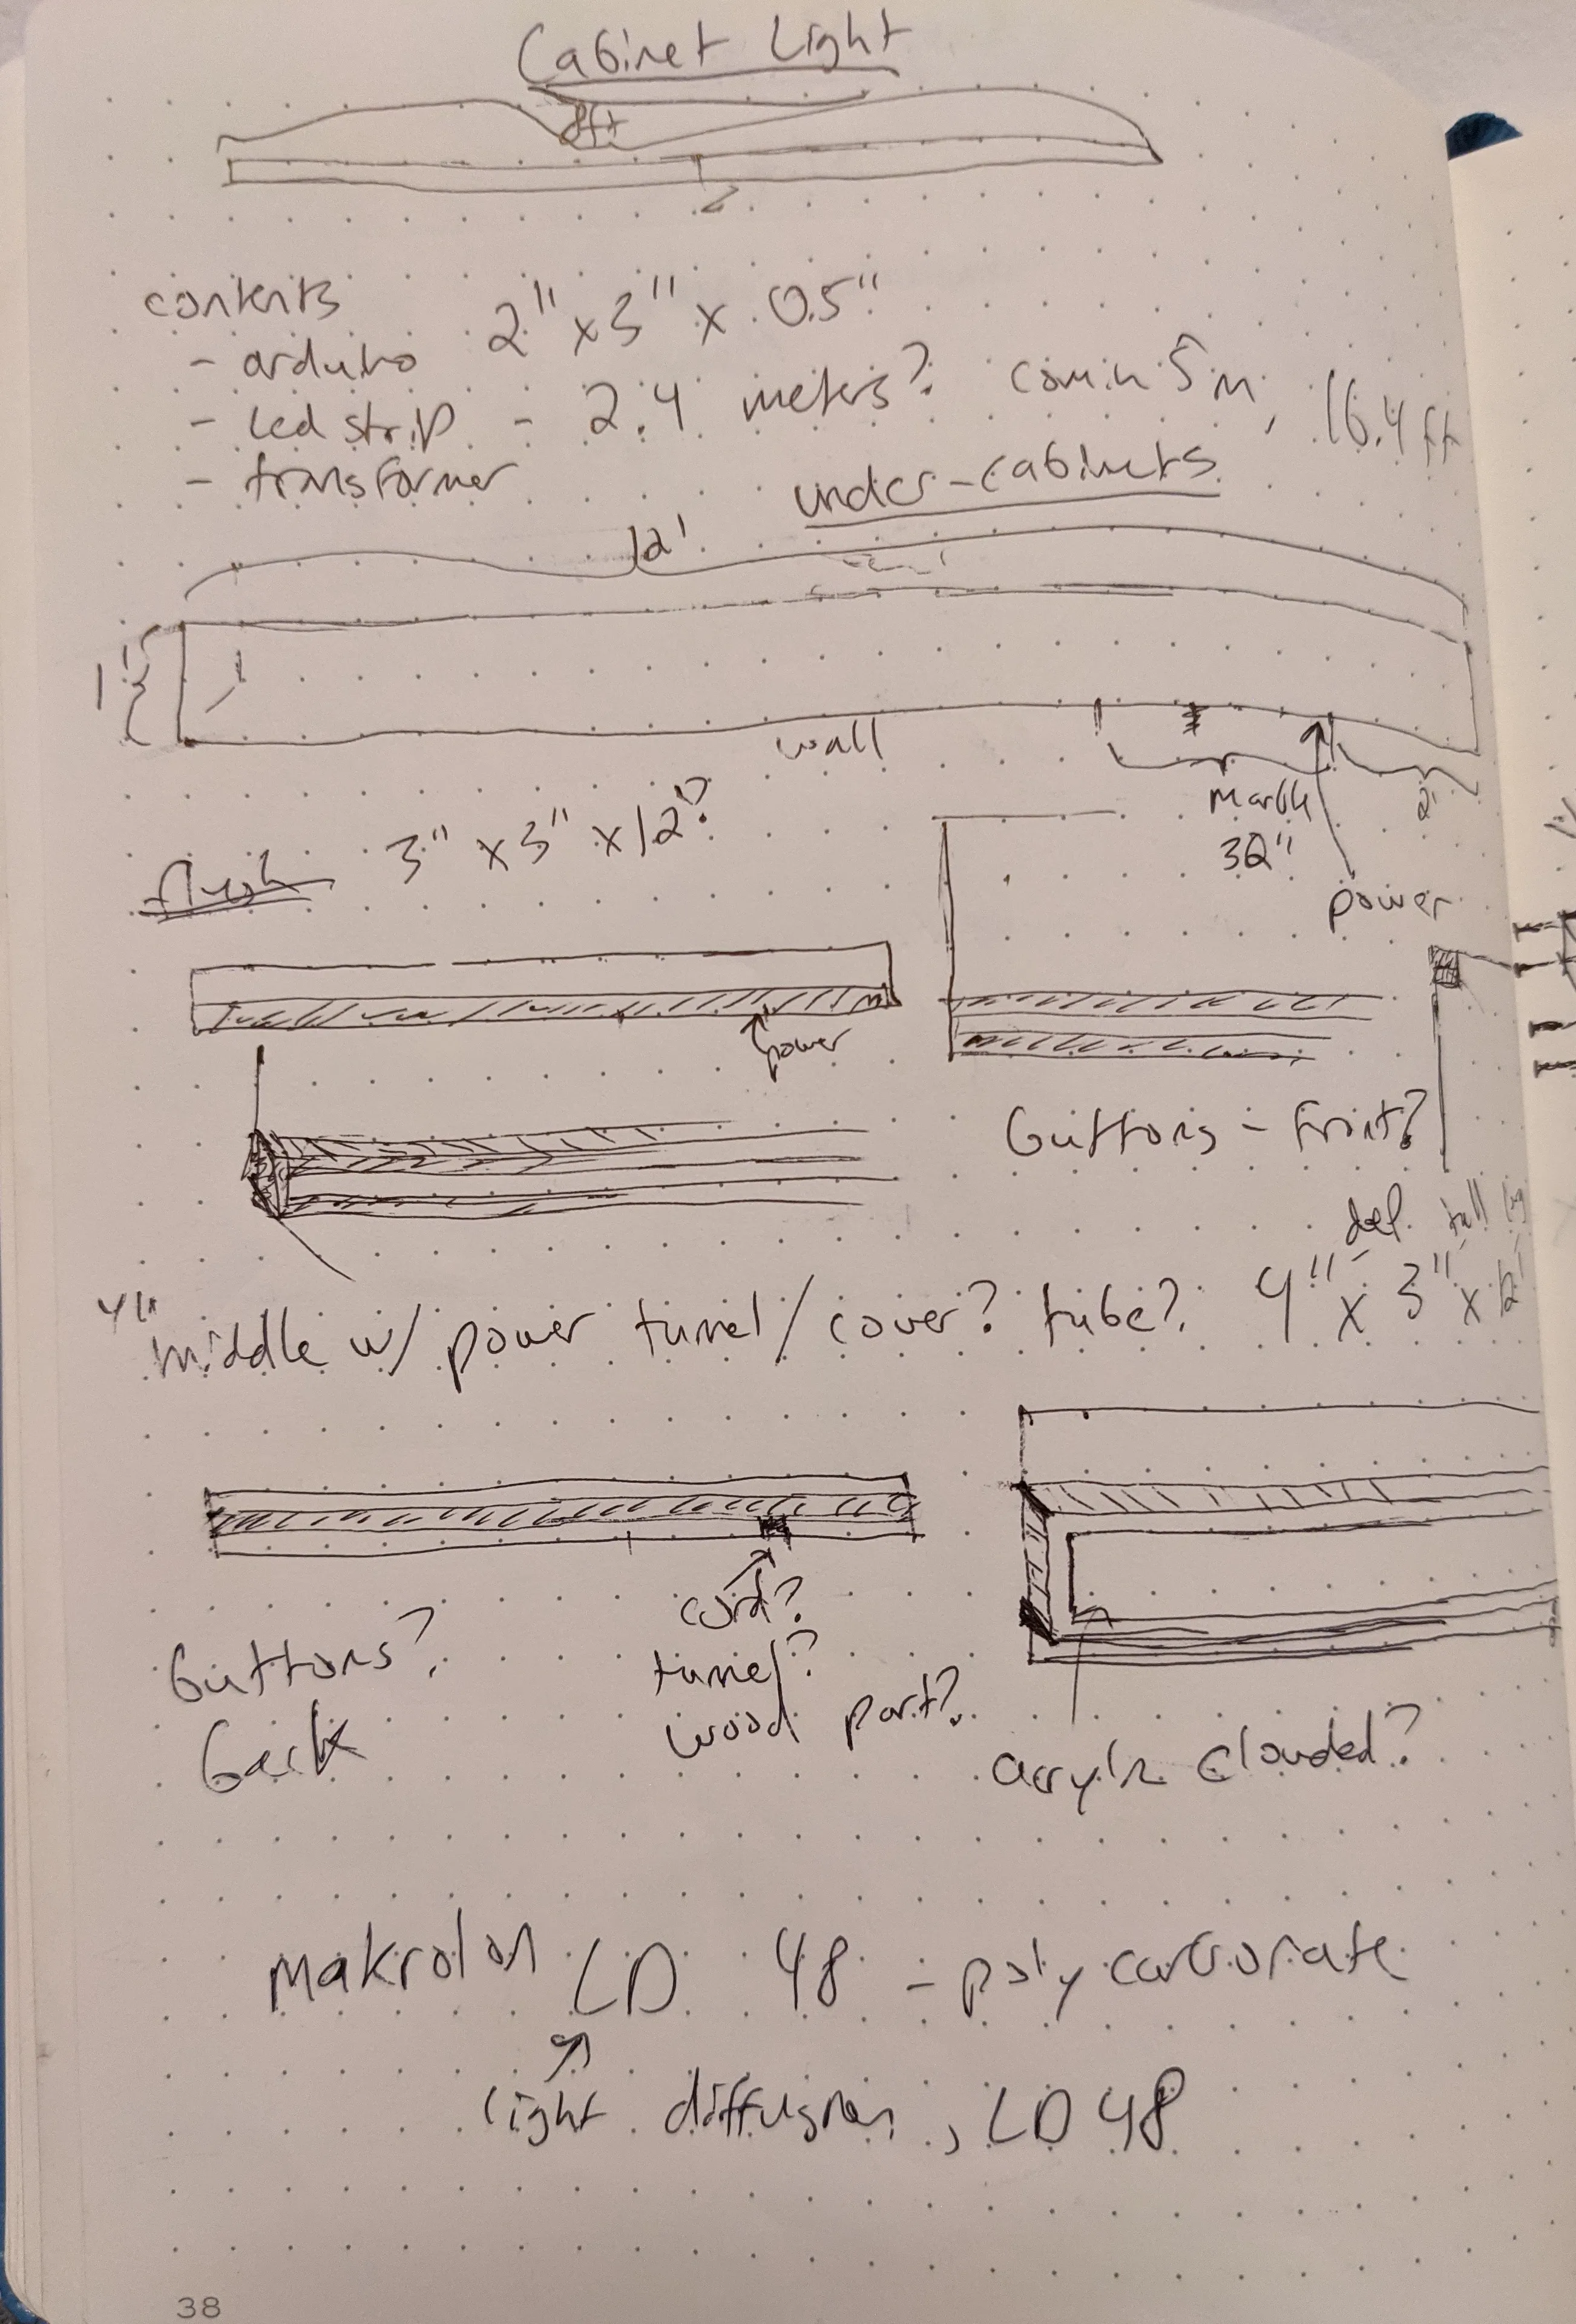 Cabinet Light
8ft
contents
- arduino 2" x 3" x 0.5"
- led strip - 2.4 meters? com in 5m, 16.4 ft
- transformer
under-cabinets
12'
1'
wall
marble
32"
2'
power
flush 3" x 3" x 12'?
power
buttons - front?
tall
4"
middle w/ power tunnel/cover? tube? 4" x 3" x 12'
cord?
tunnel?
wood part?
buttons?
back
acrylic clouded?
makrolon LD 48 - polycarbonate
light diffusion, LD 48
38